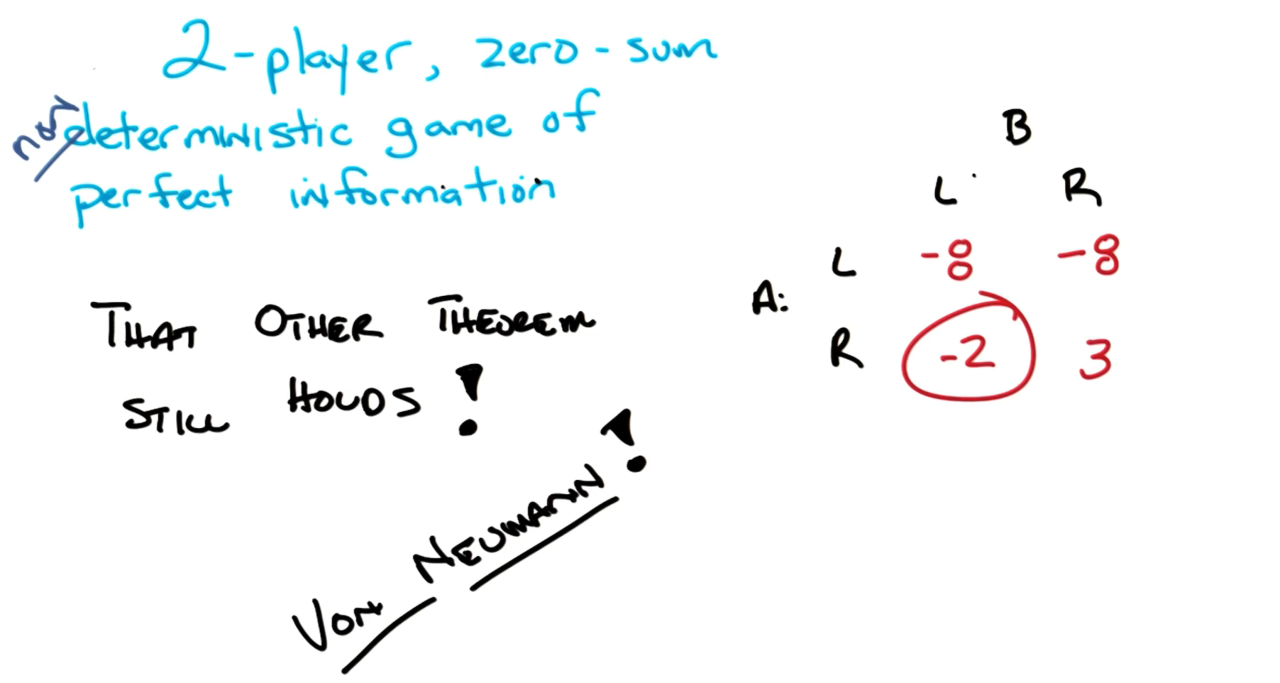 2-player, zero-sum
non
deterministic game of
perfect information
THAT OTHER THEOREM
STILL HOLDS!
VON NEUMANN!
B
L R
L -8 -8
A:
R -2 3